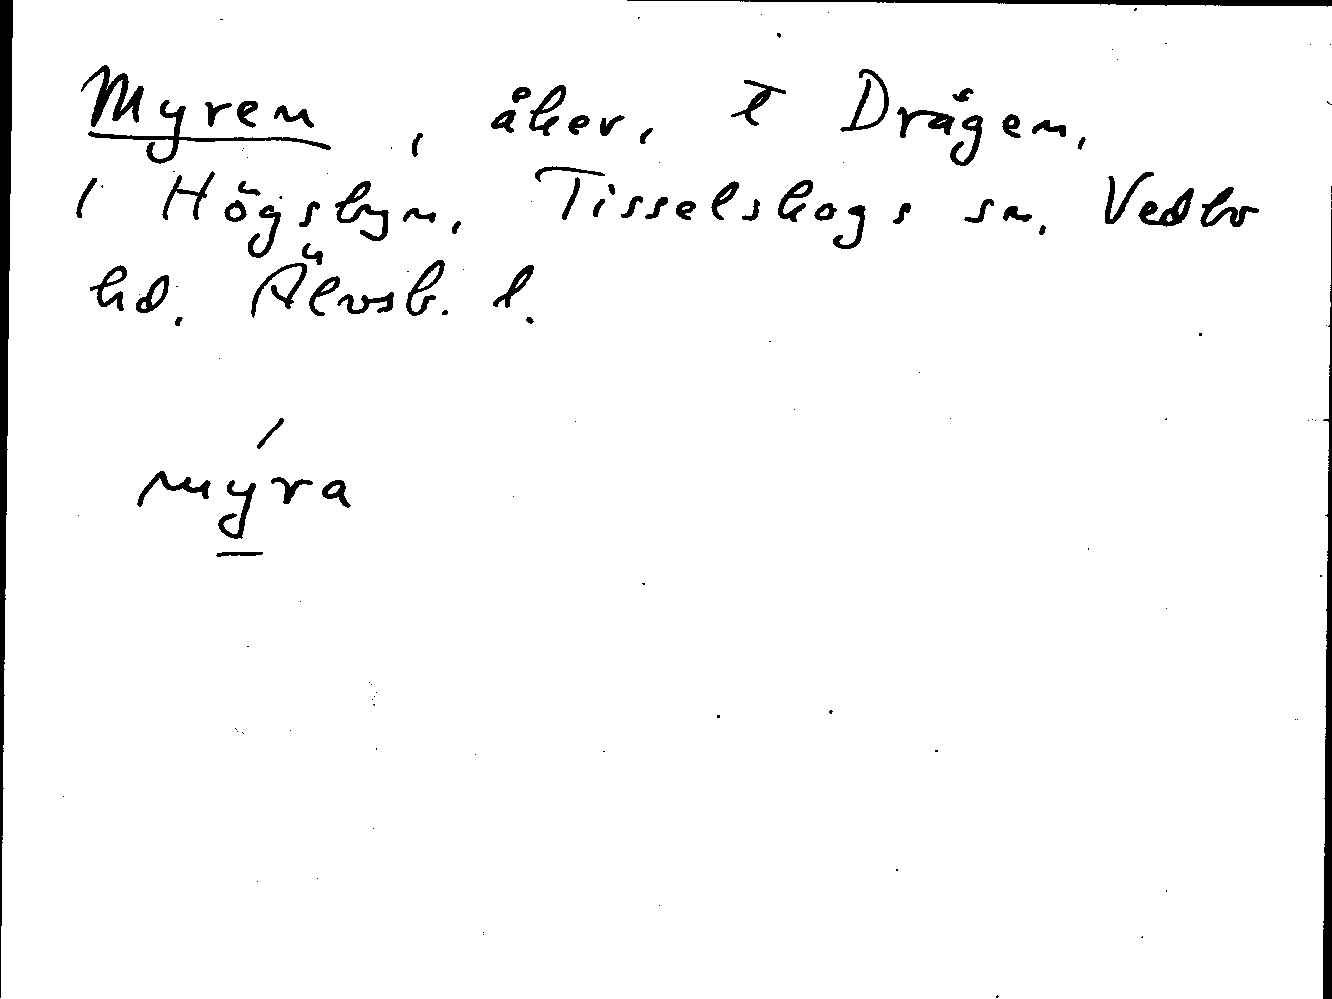 Myren, åker, t Drågen,
1 Högsbyn, Tisselskogs sn, Vedbo
hd. Älvsb. l.
mýra